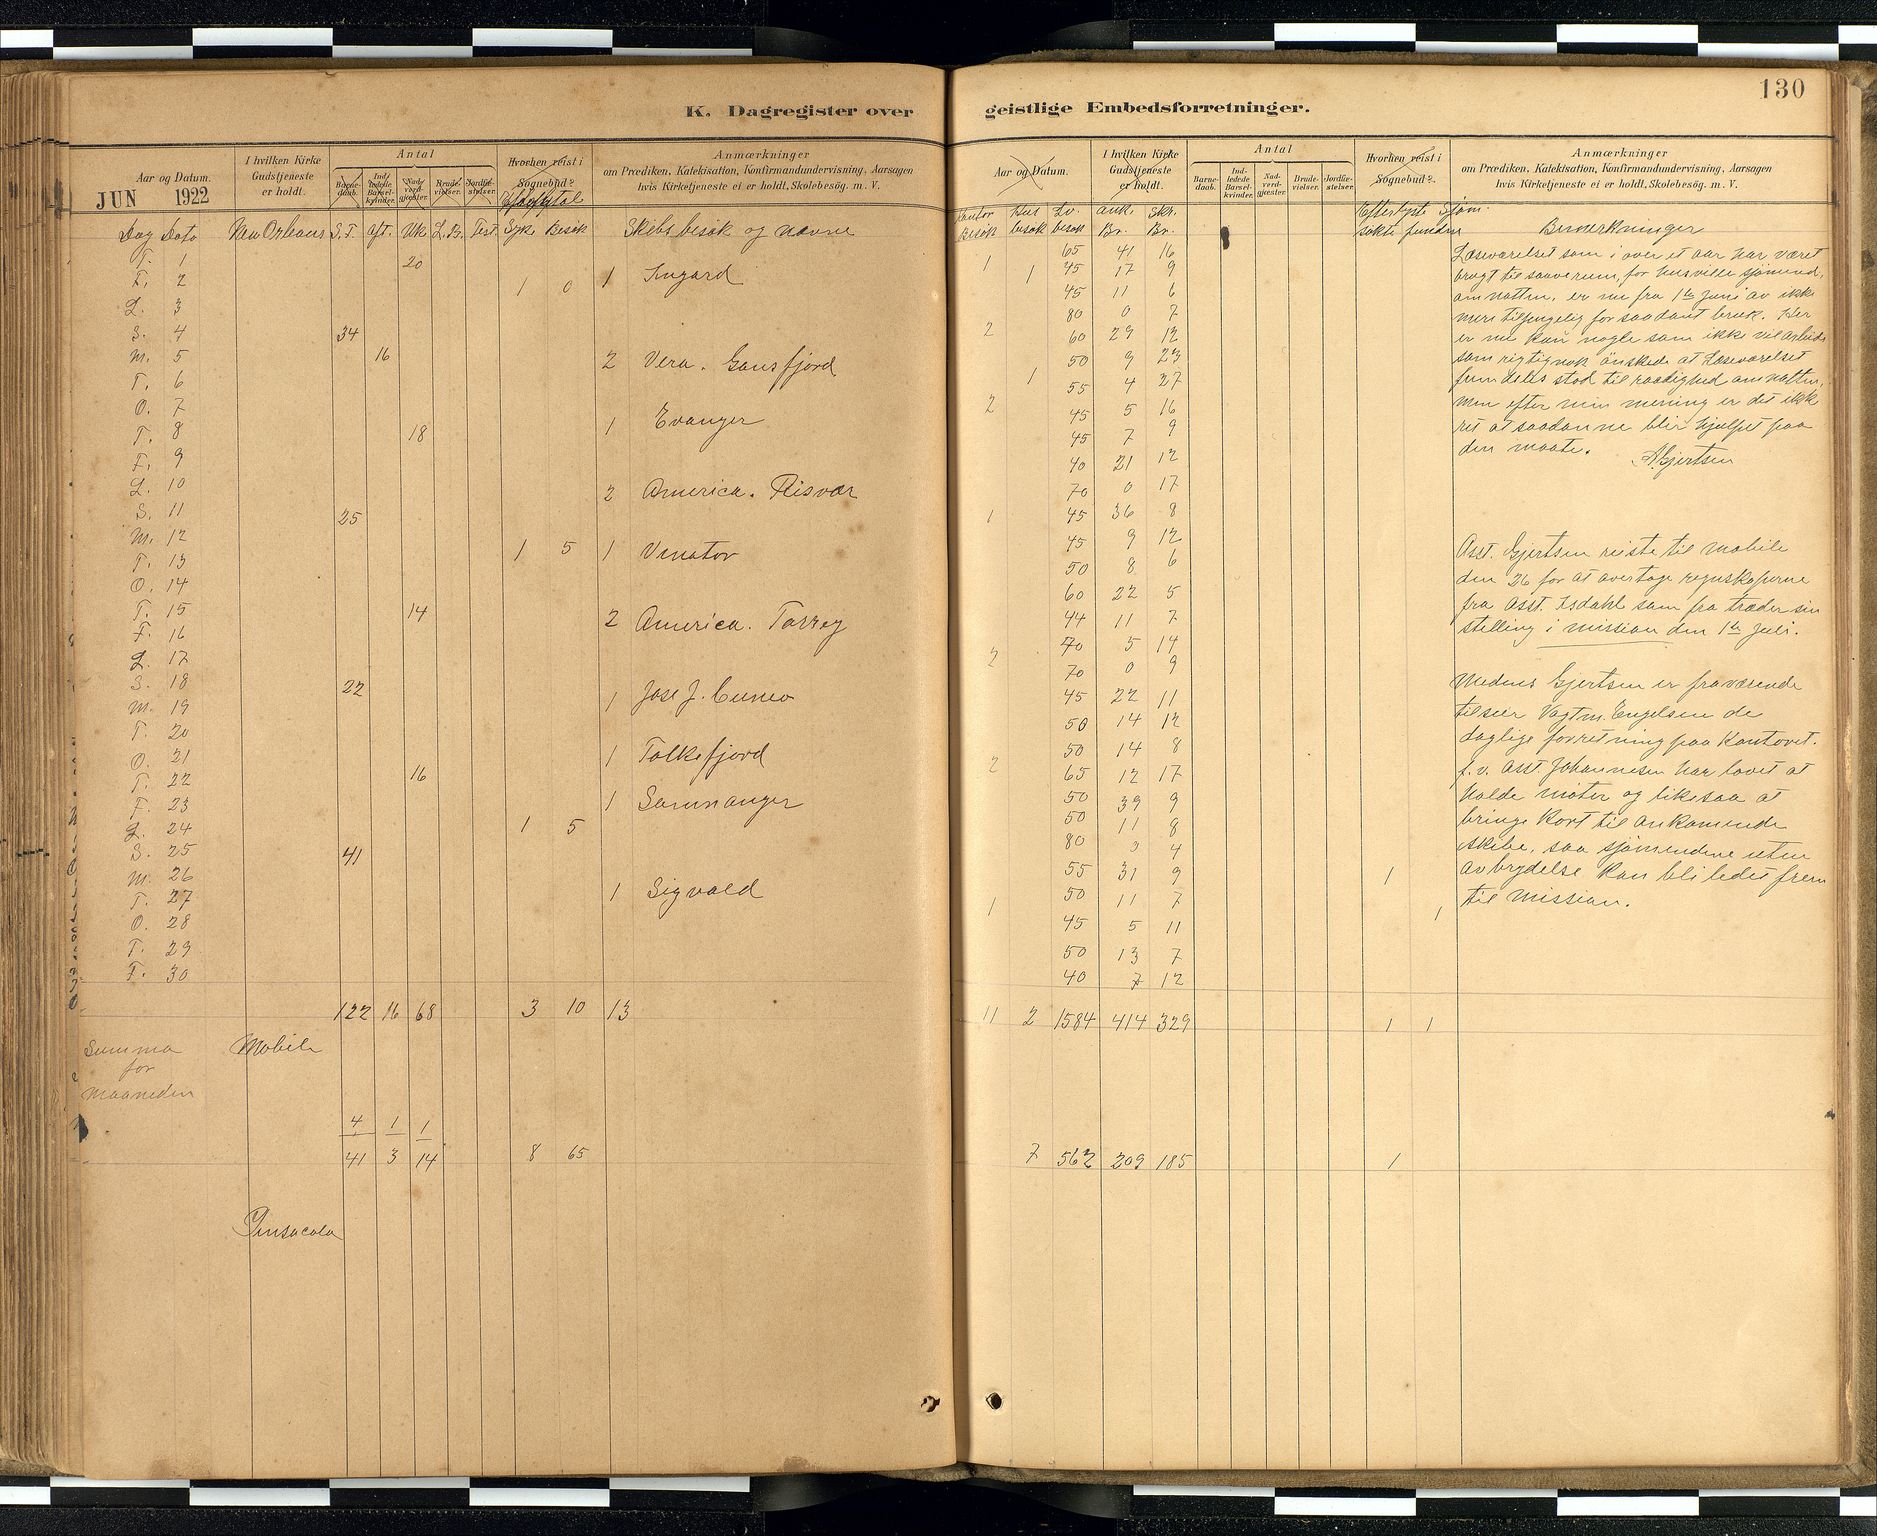 130
K. Dagregister over geistlige Embedsforretninger.
Aar og Datum.
JUN 1922
I hvilken Kirke Gudstjeneste er holdt.
Antal
Barnedaab. Indledede Barselkvinder. Nadvordgjester. Brudevielser. Jordfæstelser.
Hvorhen reist i Sognebud?
Anmærkninger
om Prædiken, Katekisation, Konfirmandundervisning, Aarsagen
hvis Kirketjeneste ei er holdt, Skolebesøg, m. V.
Dag Dato New Orleans S.F. Aft. Uk L.Br. Test. Syk Besök Skibs besök og navne
T. 1 20
F. 2 1 0 1 Ingard
L. 3
S. 4 34
M. 5 16 2 Vera. Gansfjord
T. 6
O. 7 1 Evanger
T. 8 18
F. 9
L. 10 2 America. Risvær
S. 11 25
M. 12 1 5 1 Vinator
T. 13
O. 14
T. 15 14 2 America. Torrey
F. 16
L. 17
S. 18 22 1 Jose J. Cuneo
M. 19
T. 20 1 Falkefjord
O. 21
T. 22 16 1 Samnanger
F. 23
L. 24 1 5
S. 25 41
M. 26 1 Sigvald
T. 27
O. 28
T. 29
F. 30
122 16 68 3 10 13
Summa for maaneden Mobile
4 1 1
41 3 14 8 65
Pensacola
Aar og Datum.
I hvilken Kirke Gudstjeneste er holdt.
Antal
Barnedaab. Indledede Barselkvinder. Nadvordgjester. Brudevielser. Jordfæstelser.
Hvorhen reist i Sognebud?
Anmærkninger
om Prædiken, Katekisation, Konfirmandundervisning, Aarsagen
hvis Kirketjeneste ei er holdt, Skolebesøg, m. V.
Kontor Besök Hus besök Lv. besök Ank. Br. Skr. Br. Efterlyste Sjöm. sökte funden Bemerkninger
1 65 41 16
1 45 17 9
45 11 6
80 0 7
2 60 29 12
50 9 23
1 55 4 27
2 45 5 16
45 7 9
40 21 12
70 0 17
1 45 36 8
45 9 12
50 8 6
60 22 5
44 11 7
70 5 14
2 70 0 9
45 22 11
50 14 12
50 14 8
2 65 12 17
50 39 9
50 11 8
80 0 4
55 31 9 1
50 11 7
1 45 5 11 1
50 13 7
40 7 12
11 2 1584 414 329 1 1
7 562 209 185 1
Læseværelset som i over et aar har været
brugt til soaverum, for husville sjömend,
om natten, er nu fra 1ste Juni av ikke
mere tilgjengelig for saadant bruk. Her
er nu kun nogle som ikke vil arbeide
som rigtignok önskede at Læseværelset
fremdeles stod til raadighed om natten,
men efter min mening er det ikke
ret at saadanne blir hjulpet paa
den maate. A. Gjertsen
Asst. Gjertsen reiste til Mobile
den 26 for at overtage regnskaperne
fra Asst. Isdahl som fratræder sin
stelling i mission den 1ste Juli.
Medens Gjertsen er fraværende
tilseer Vagtm. Engelsen de
daglige forretning paa Kontoret.
f.v. Asst. Johannesen har lovet at
holde möter og likesaa at
bringe kort til ankomende
skibe, saa sjömendene uten
avbrydelse kan bli ledet frem
til mission.